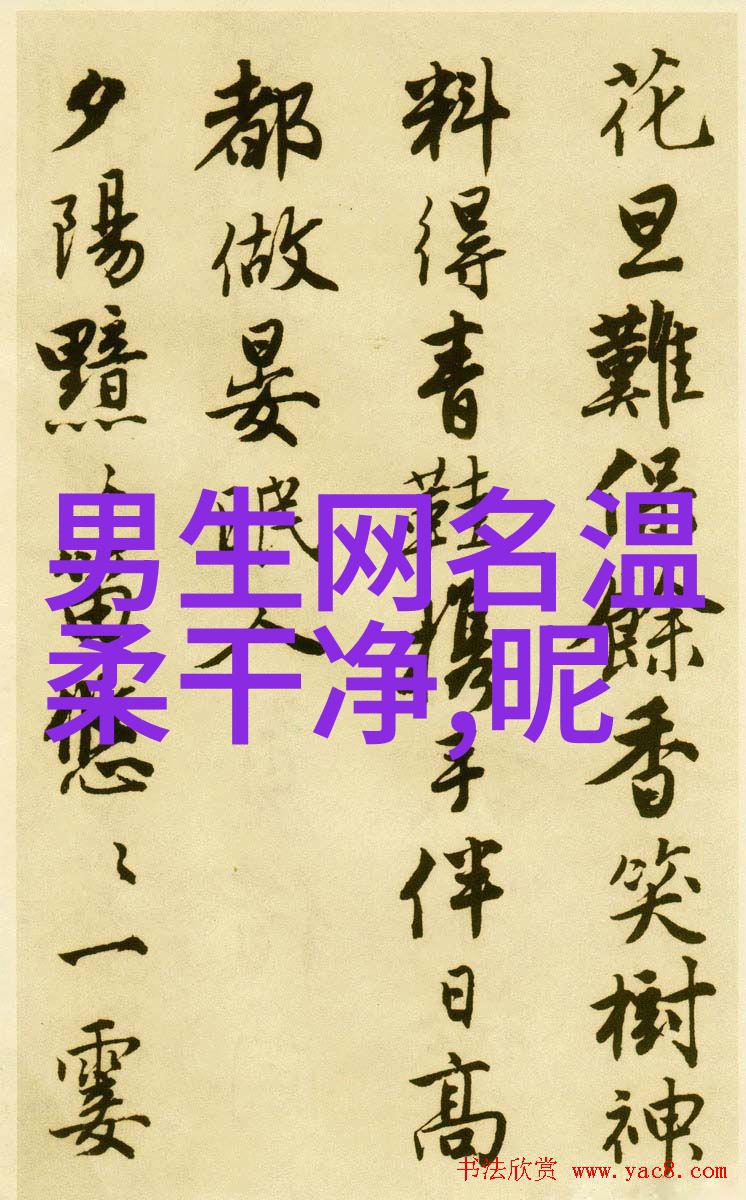 花旦難保餘香笑樹神
料得青鞋携手伴日高
都做晏眠人
夕陽黯〻笛悠〻一霎
男生网名温
柔干净,昵
书法欣赏 www.yac8.com